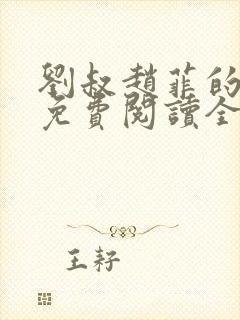 劉叔趙菲的
免費閱讀全
王耔